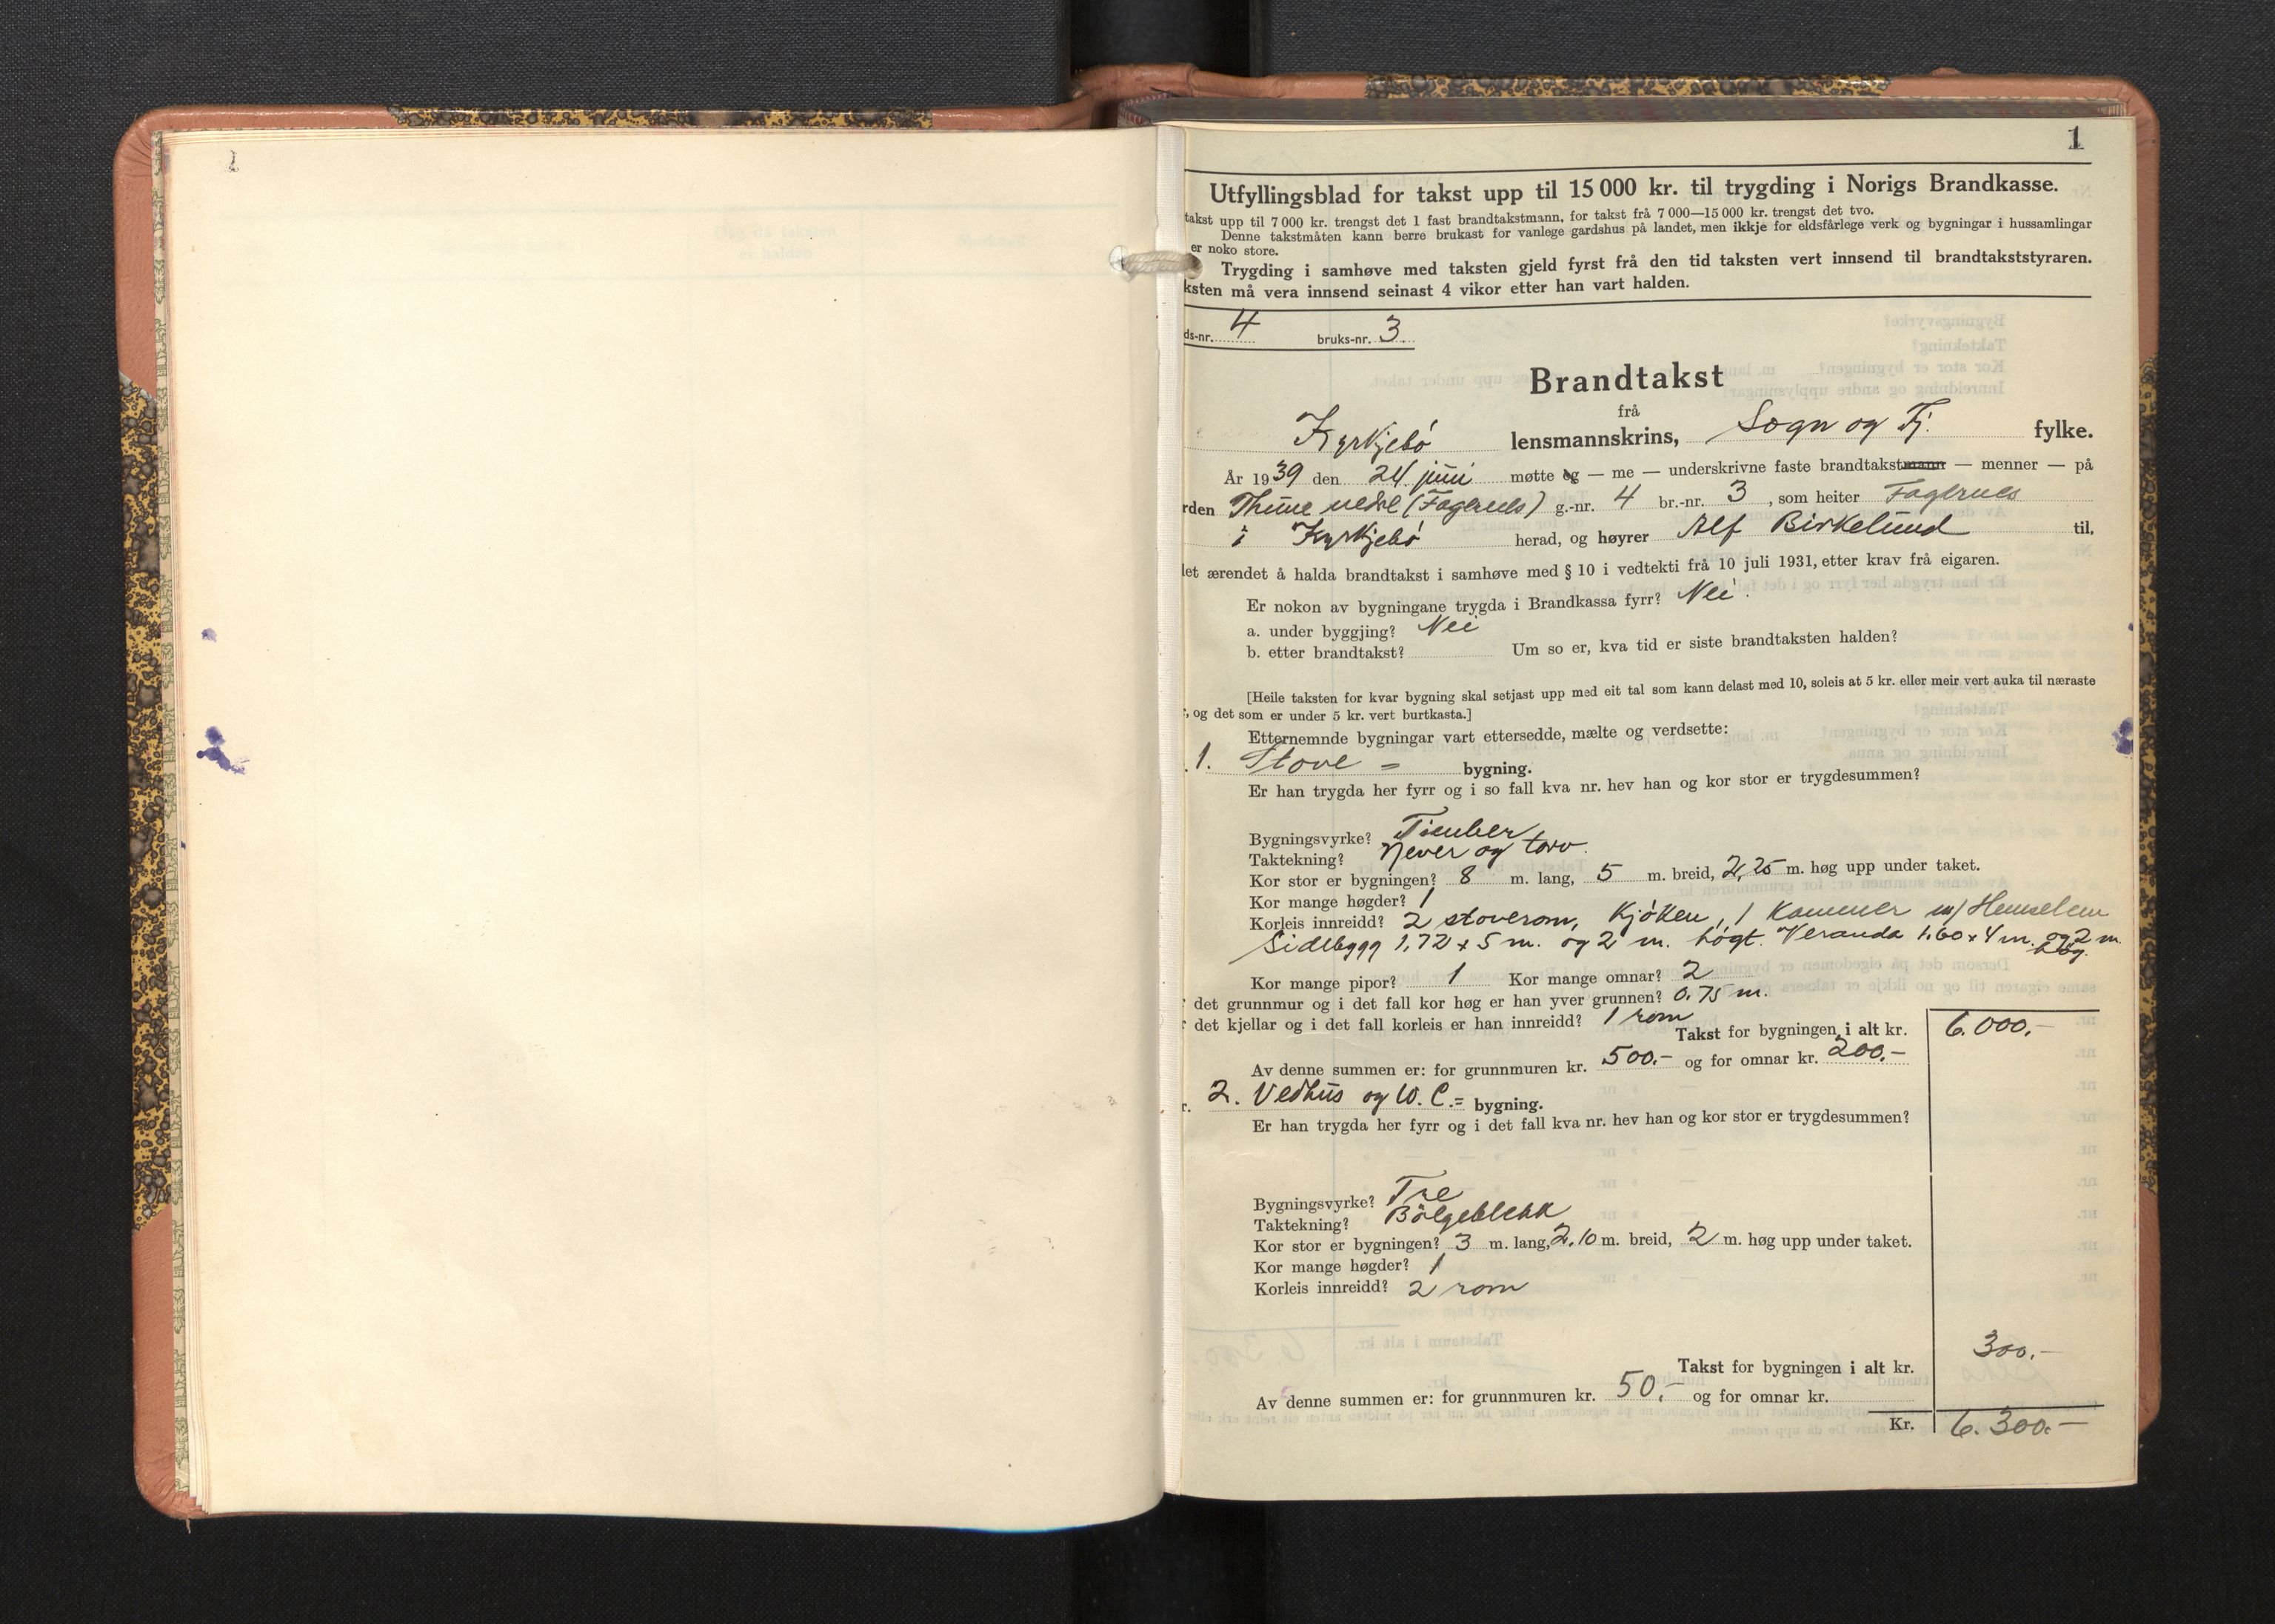 1
1
Utfyllingsblad for takst upp til 15 000 kr. til trygding i Norigs Brandkasse.
takst upp til 7 000 kr. trengst det 1 fast brandtakstmann, for takst frå 7 000—15 000 kr. trengst det tvo.
Denne takstmåten kann berre brukast for vanlege gardshus på landet, men ikkje for eldsfårlege verk og bygningar i hussamlingar
er noko store.
Trygding i samhøve med taksten gjeld fyrst frå den tid taksten vert innsend til brandtakststyraren.
ksten må vera innsend seinast 4 vikor etter han vart halden.
ds-nr. 4 bruks-nr. 3
Brandtakst
frå
Kyrkjebø lensmannskrins, Sogn og Fj. fylke.
År 1939 den 24 juni møtte eg — me — underskrivne faste brandtakstmann — menner — på
rden Thune nedre (Fagernes) g.-nr. 4 br.-nr. 3, som heiter Fagernes
i Kyrkjebø herad, og høyrer Alf Birkelund til,
let ærendet å halda brandtakst i samhøve med § 10 i vedtekti frå 10 juli 1931, etter krav frå eigaren.
Er nokon av bygningane trygda i Brandkassa fyrr? Nei.
a. under byggjing? Nei
b. etter brandtakst? Um so er, kva tid er siste brandtaksten halden?
[Heile taksten for kvar bygning skal setjast upp med eit tal som kann delast med 10, soleis at 5 kr. eller meir vert auka til næraste
, og det som er under 5 kr. vert burtkasta.]
Etternemnde bygningar vart ettersedde, mælte og verdsette:
. 1. Stove = bygning.
Er han trygda her fyrr og i so fall kva nr. hev han og kor stor er trygdesummen?
Bygningsvyrke? Timber
Taktekning? Never og torv.
Kor stor er bygningen? 8 m. lang, 5 m. breid, 2,25 m. høg upp under taket.
Kor mange høgder? 1
Korleis innreidd? 2 stoverom, Kjøken, 1 Kammer m/ Hemselem
Sidebygg 1,72 x 5 m. og 2 m. høgt. Veranda 1.60 x 4 m. og 2 m.
høg.
Kor mange pipor? 1 Kor mange omnar? 2
det grunnmur og i det fall kor høg er han yver grunnen? 0.75 m.
det kjellar og i det fall korleis er han innreidd? 1 rom
Takst for bygningen i alt kr. 6.000.-
Av denne summen er: for grunnmuren kr. 500.- og for omnar kr. 200.-
r. 2. Vedhus og W. C. = bygning.
Er han trygda her fyrr og i det fall kva nr. hev han og kor stor er trygdesummen?
Bygningsvyrke? Tre
Taktekning? Bølgeblekk
Kor stor er bygningen? 3 m. lang, 2.10 m. breid, 2 m. høg upp under taket.
Kor mange høgder? 1
Korleis innreidd? 2 rom
Takst for bygningen i alt kr. 300.-
Av denne summen er: for grunnmuren kr. 50.- og for omnar kr.
Kr. 6.300.-